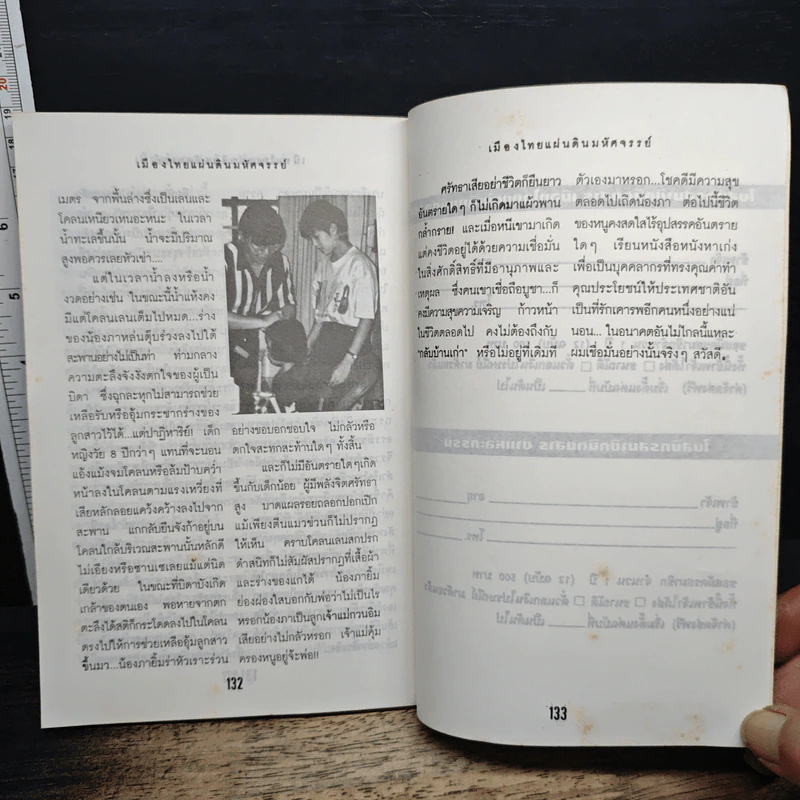 เมืองไทยแผ่นดินมหัศจรรย์
เมตร จากพื้นล่างซึ่งเป็นเลนและ
โคลนเหนียวเหนอะหนะ ในเวลา
น้ำทะเลขึ้นนั้น น้ำจะมีปริมาณ
สูงพอควรเลยหัวเข่า....
แต่ในเวลาน้ำลงหรือน้ำ
งวดอย่างเช่น ในขณะนี้น้ำแห้งคง
มีแต่โคลนเลนเต็มไปหมด...ร่าง
ของน้องภาหล่นตุ๊บร่วงลงไปใต้
สะพานอย่างไม่เป็นท่า ท่ามกลาง
ความตะลึงจังงังตกใจของผู้เป็น
บิดา ซึ่งฉุกละหุกไม่สามารถช่วย
เหลือรับหรืออุ้มกระชากร่างของ
ลูกสาวไว้ได้...แต่ปาฏิหาริย์! เด็ก
หญิงวัย 8 ปีกว่าๆ แทนที่จะนอน
แอ้งแม้งจมโคลนหรือล้มป้าบคว่ำ
หน้าลงในโคลนตามแรงเหวี่ยงที่
เสียหลักลอยแคว้งคว้างลงไปจาก
สะพาน แกกลับยืนจังก้าอยู่บน
โคลนใกล้บริเวณสะพานนั้นหลักดี
ไม่เอียงหรือซานเซเลยแม้แต่นิด
เดียวด้วย ในขณะที่บิดาบังเกิด
เกล้าของตนเอง พอหายจากตก
ตะลึงได้สติก็กระโดดลงไปในโคลน
ตรงไปให้การช่วยเหลืออุ้มลูกสาว
ขึ้นมา...น้องภายิ้มร่าหัวเราะร่วน
อย่างชอบอกชอบใจ ไม่กลัวหรือ
ตกใจสะทกสะท้านใดๆ ทั้งสิ้น
และก็ไม่มีอันตรายใดๆเกิด
ขึ้นกับเด็กน้อย ผู้มีพลังจิตศรัทธา
สูง บาดแผลรอยถลอกปอกเปิก
แม้เพียงตีนแมวข่วนก็ไม่ปรากฏ
ให้เห็น คราบโคลนเลนสกปรก
ดำสนิทก็ไม่สัมผัสปรากฏที่เสื้อผ้า
และร่างของแกได้ น้องภายิ้ม
ย่องผ่องใสบอกกับพ่อว่าไม่เป็นไร
หรอกน้องมาเป็นลูกเจ้าแม่กวนอิม
เสียอย่างไม่กลัวหรอก เจ้าแม่คุ้ม
ครองหนูอยู่จ้ะพ่อ!!
132
เมืองไทยแผ่นดินมหัศจรรย์
ศรัทธาเสียอย่าชีวิตก็ยืนยาว
อันตรายใดๆ ก็ไม่เกิดมาแผ้วพาน
กล้ำกราย! และเมื่อหนีเขามาเกิด
แต่คงชีวิตอยู่ได้ด้วยความเชื่อมั่น
ในสิ่งศักดิ์สิทธิ์ที่มีอานุภาพและ
เหตุผล ซึ่งคนเขาเชื่อถือบูชา...ก็
คงมีความสุขความเจริญ ก้าวหน้า
ในชีวิตตลอดไป คงไม่ต้องถึงกับ
"กลับบ้านเก่า" หรือไม่อยู่ที่เดิมที่
ตัวเองมาหรอก...โชคดีมีความสุข
ตลอดไปเถิดน้องภา ต่อไปนี้ชีวิต
ของหนูคงสดใสไร้อุปสรรคอันตราย
ใดๆ เรียนหนังสือหนังหาเก่ง
เพื่อเป็นบุคคลากรที่ทรงคุณค่าทำ
คุณประโยชน์ให้ประเทศชาติอัน
เป็นที่รักเคารพอีกคนหนึ่งอย่างแน่
นอน...ในอนาคตอันไม่ไกลนี้แหละ
ผมเชื่อมั่นอย่างนั้นจริงๆ สวัสดี.
133